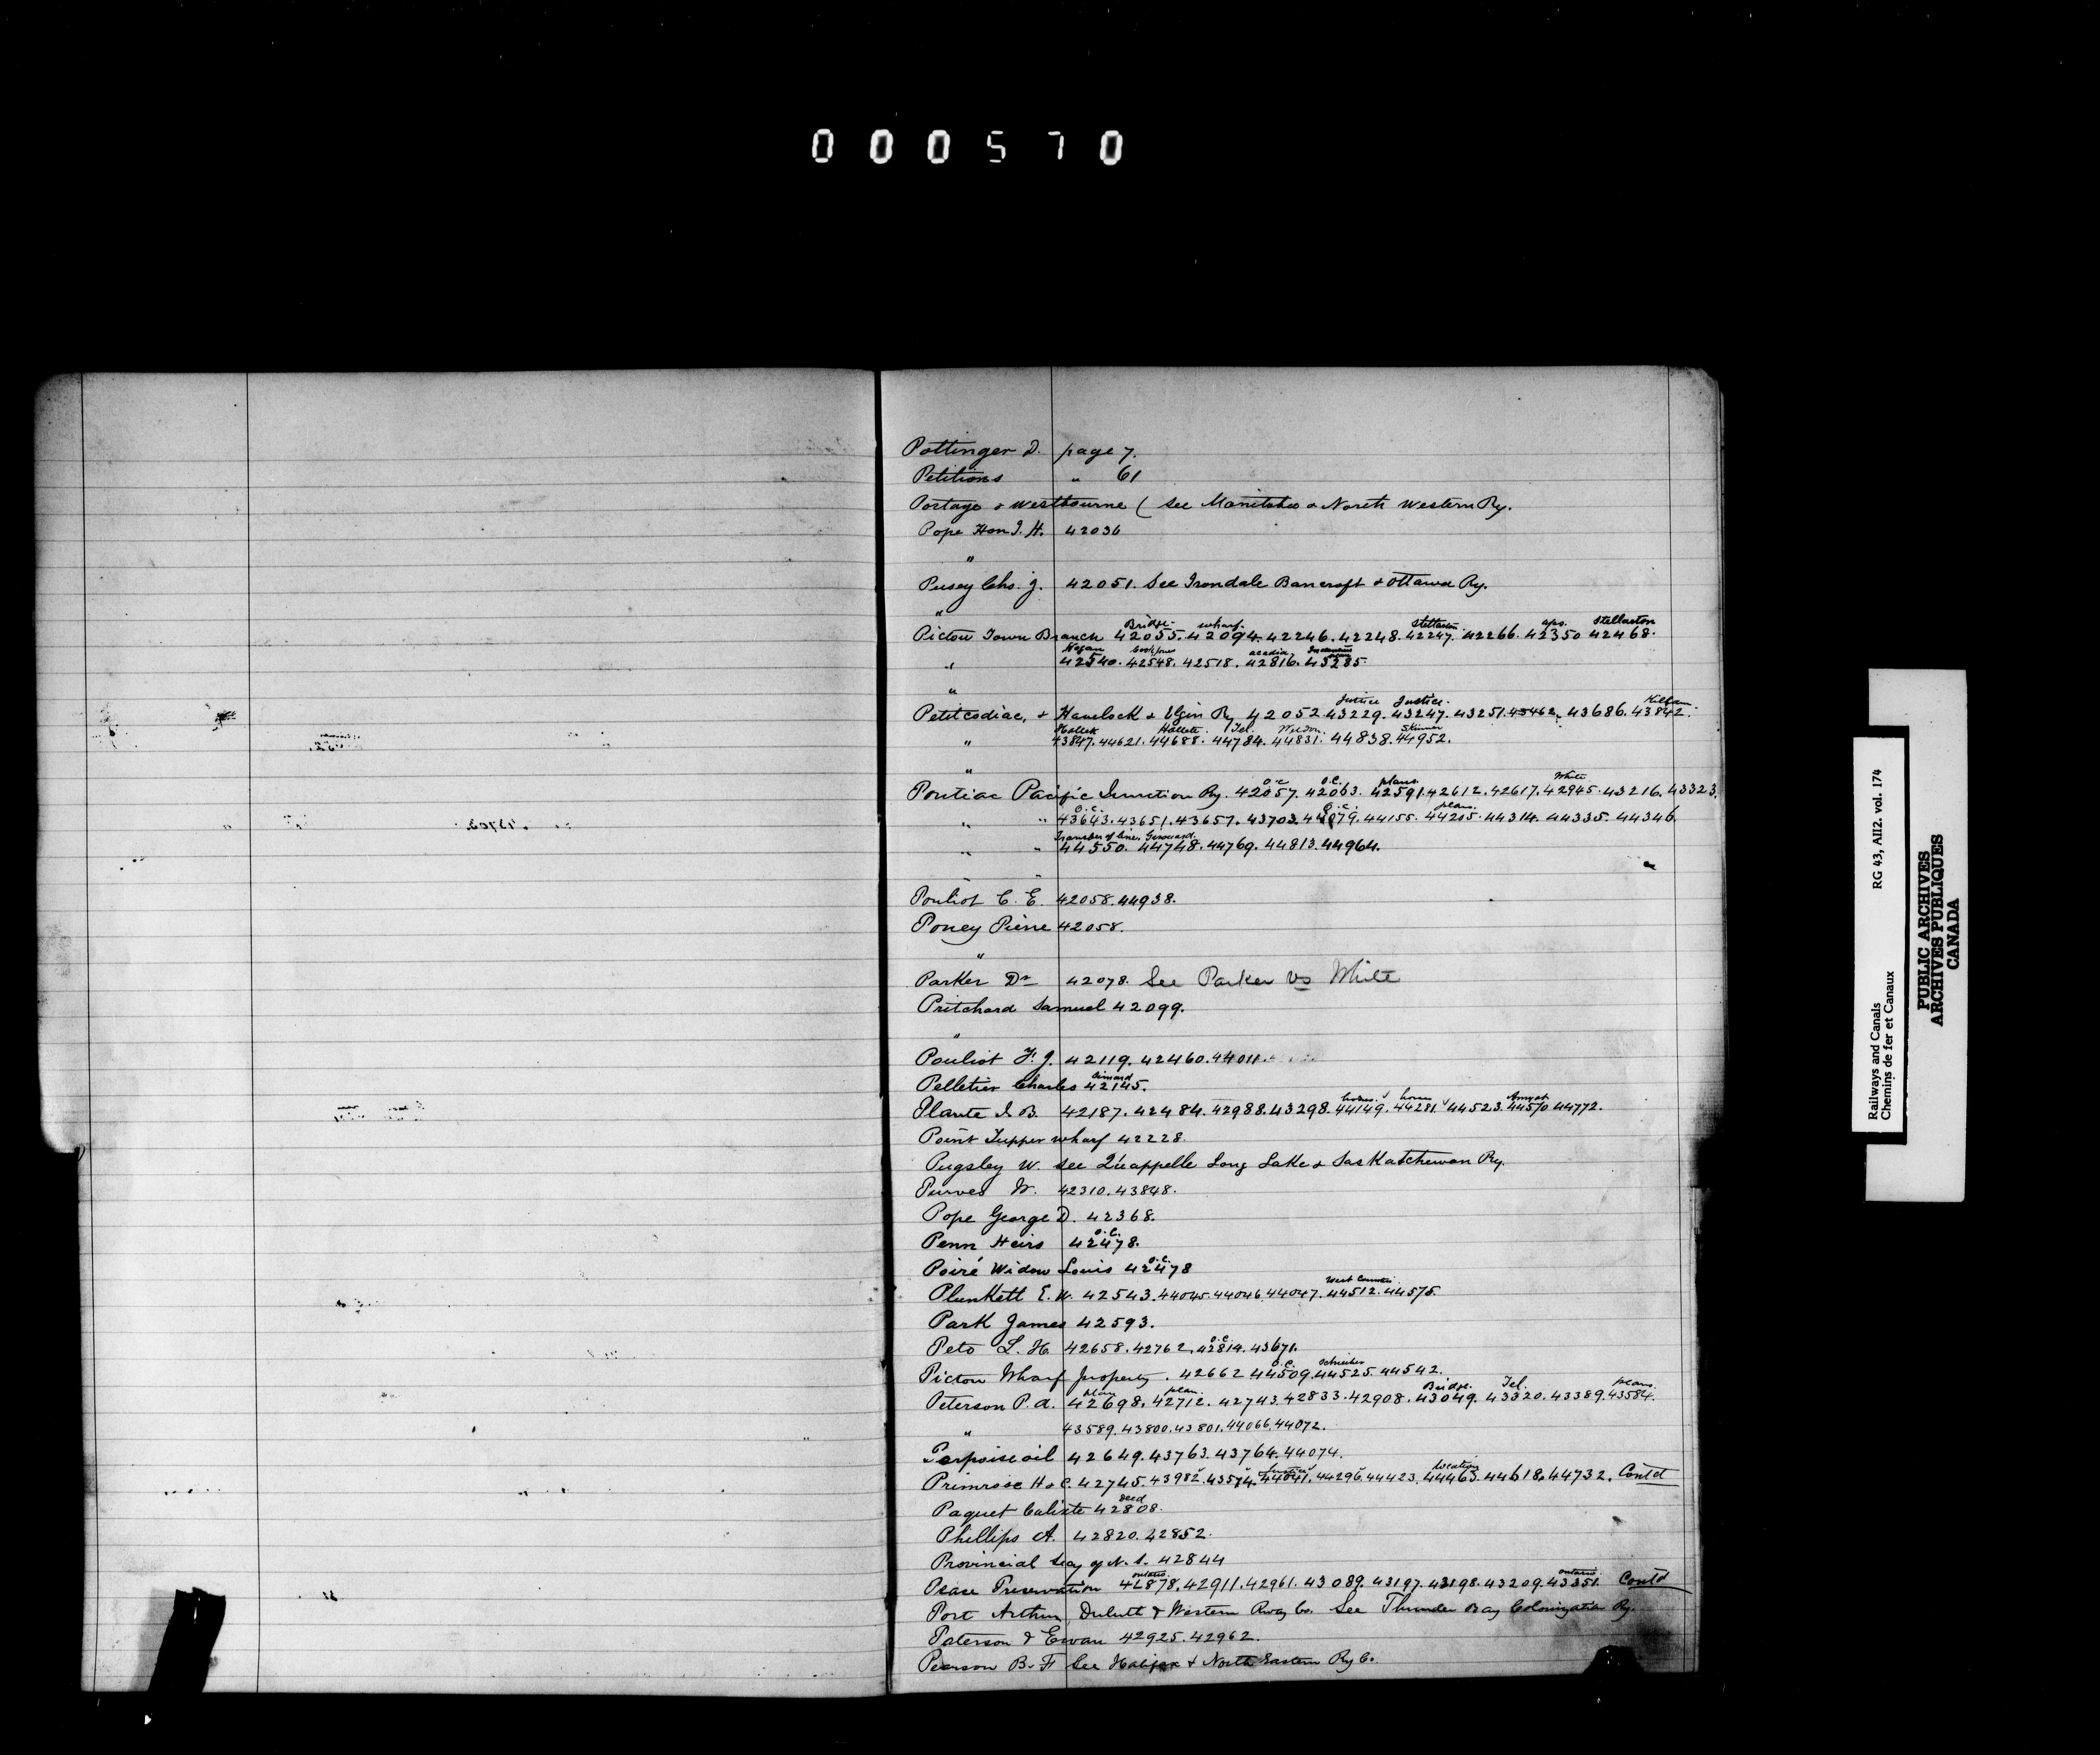 000570
Pottinger D. page 7.
Petitions " 61
Portage & Westbourne ( See Manitoba & North Western Ry.
Pope Hon J. H. 42036
"
Pusey Chs. J. 42051. See Irondale Bancroft & Ottawa Ry.
"
Bridge. wharf. Stellarton. aps. Stellarton
Pictou Town Branch 42055. 42094. 42246. 42248. 42247. 42266. 42350 42468.
Hogan acadia
" 42540. 42548. 42518. 42816. 43285.
"
Justice Justice. Killam.
Petitcodiac, & Havelock & Elgin Ry 42052. 43229. 43247. 43251. 43462. 43686. 43842.
Hallett Hallett. Tel. Weldon. Skinner
" 43847. 44621. 44688. 44784. 44831. 44838. 44952.
"
O.C O.C. plans. White
Pontiac Pacific Junction Ry. 42057. 42063. 42591. 42612. 42617. 42945. 43216. 43323.
O.C. O.C. plans.
" " 43643. 43651. 43657. 43703. 44079. 44155. 44205. 44314. 44335. 44346.
Transfer of line. Girouard
" " 44550. 44748. 44769. 44813. 44964.
"
Pouliot C. E. 42058. 44938.
Poney Pierre 42058.
"
Parker Dr 42078. See Parker vs White
Pritchard Samuel 42099.
"
Pouliot F. J. 42119. 42460. 44011.
Simard
Pelletier Charles 42145.
Plante J. B. 42187. 42484. 42988. 43298. 44149. 44281. 44523. 44570 44772.
Point Tupper wharf 42228.
Pugsley W. see Qu'appelle Long Lake & Saskatchewan Ry.
Purves W. 42310. 43848.
Pope George D. 42368.
O.C.
Penn Heirs 42478.
O.C.
Poiré Widow Louis 42478
West Counties
Plunkett E. W. 42543. 44045. 44046. 44047. 44512. 44575.
Park James 42593.
O.C
Peto L. H. 42658. 42762. 42814. 43671.
O.C. Schreiber
Pictou Wharf property. 42662 44509. 44525. 44542.
plan plan. Bridge. Tel. plans.
Peterson P. A. 42698. 42712. 42743. 42833. 42908. 43049. 43320. 43389. 43584.
" 43589. 43800. 43801. 44066. 44072.
Porpoise oil 42649. 43763. 43764. 44074.
location
Primrose H & C. 42745. 43982. 43574. 44041. 44296. 44423. 44463. 44618. 44732. Contd
deed
Paquet Calixte 42808.
Phillips A. 42820. 42852.
Provincial Secy of N. S. 42844
ontario. ontario.
Peace Preservation 42878. 42911. 42961. 43089. 43197. 43198. 43209. 43351. Contd
Port Arthur Duluth & Western Rway Co. See Thunder Bay Colonization Ry.
Paterson & Ewan 42925. 42962.
Pearson B. F See Halifax & North Eastern Ry Co.
Railways and Canals RG 43, AII2. vol. 174
Chemins de fer et Canaux
PUBLIC ARCHIVES
ARCHIVES PUBLIQUES
CANADA